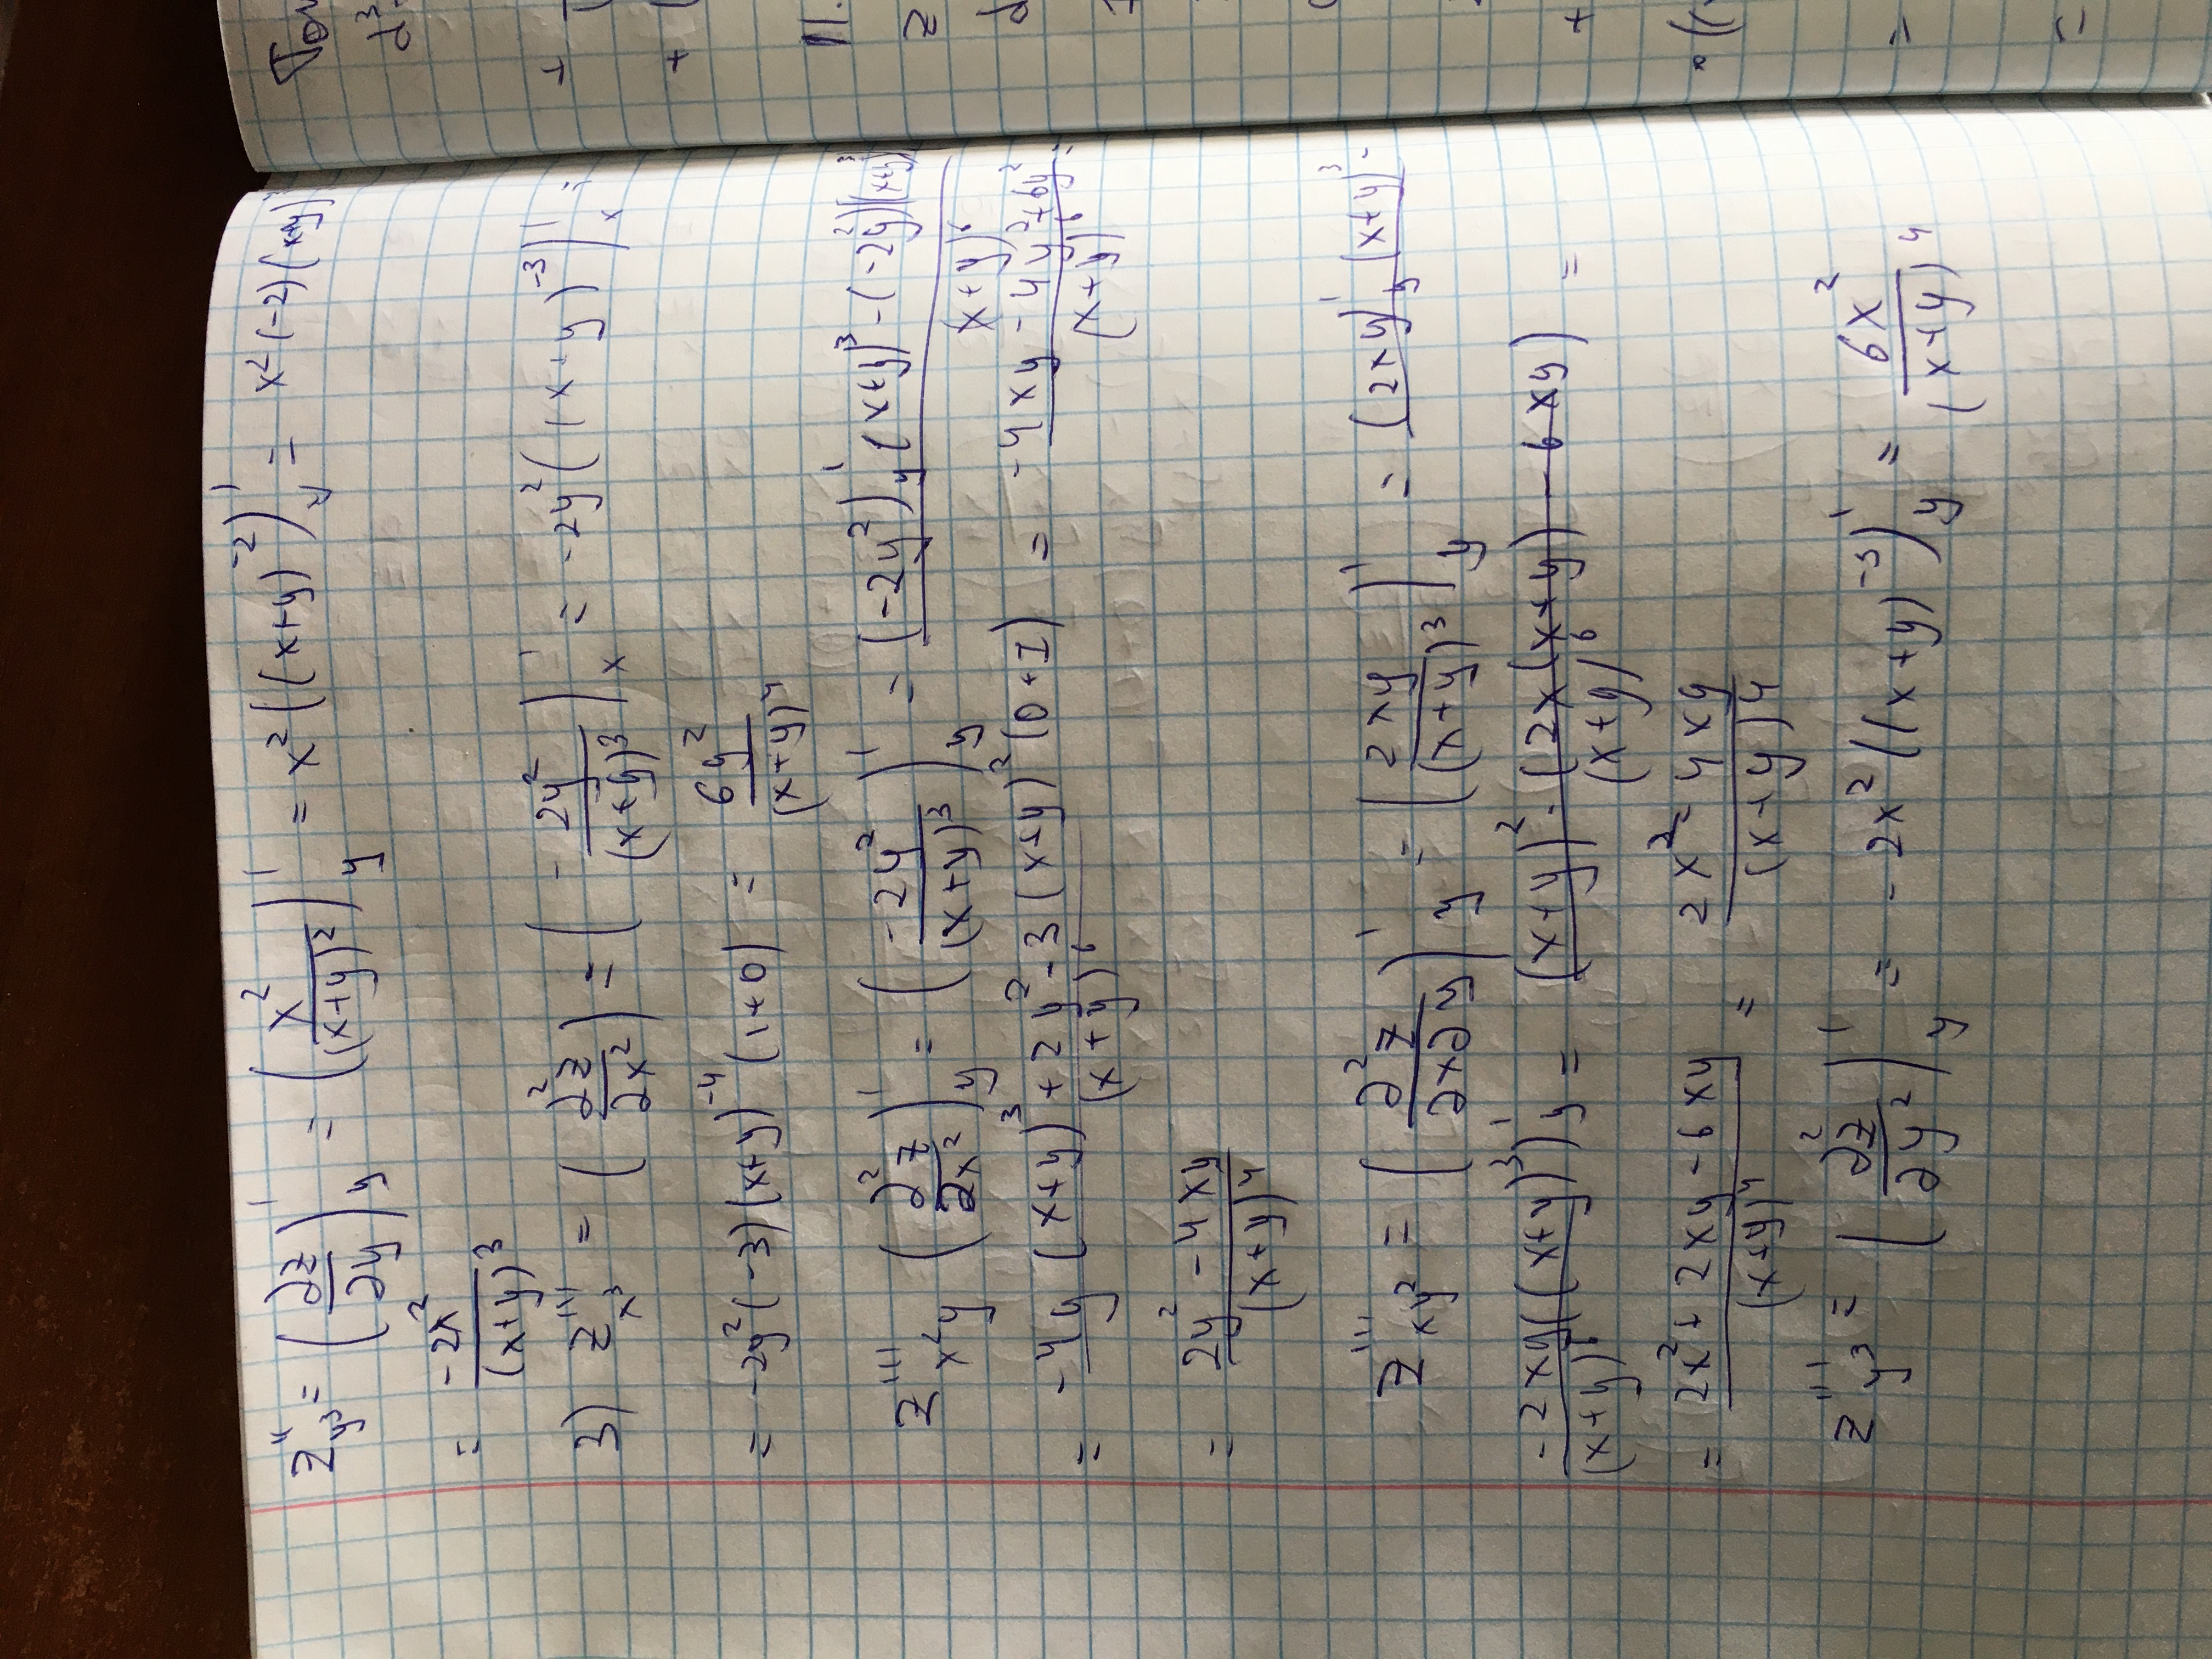 z''_{y^3} = (∂z/∂y)'_y = (x^2/(x+y)^2)'_y = x^2((x+y)^{-2})'_y = x^2(-2)(x+y)
= -2x^2/(x+y)^3
3) z'''_{x^3} = (∂^2z/∂x^2) = (-2y^2/(x+y)^3)'_x = -2y^2((x+y)^{-3})'_x =
= -2y^2(-3)(x+y)^{-4}(1+0) = 6y^2/(x+y)^4
z'''_{x^2y} (∂^2z/∂x^2)'_y = (-2y^2/(x+y)^3)'_y = (-2y^2)'_y(x+y)^3-(-2y^2)((x+y)^3/(x+y)^6
= -4y(x+y)^3+2y^2·3(x+y)^2(0+1)/(x+y)^6 = -4xy-4y^2+6y^2/(x+y)^6 =
= 2y^2-4xy/(x+y)^4
z'''_{xy^2} = (∂^2z/∂x∂y)'_y = (2xy/(x+y)^3)'_y = (2xy)'_y(x+y)^3-
-2xy((x+y)^3)'_y/(x+y)^6 = (x+y)^2·(2x(x+y)-6xy)/(x+y)^6 =
= 2x^2+2xy-6xy/(x+y)^4 = 2x^2-4xy/(x+y)^4
z'''_{y^3} = (∂^2z/∂y^2)'_y = -2x^2((x+y)^{-3})'_y = 6x^2/(x+y)^4
d^3
+
+
11.
z
+
=
=